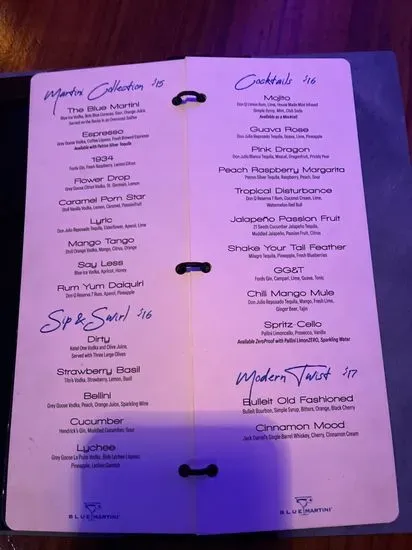 Martini Collection $15
The Blue Martini
Blue Ice Vodka, Bols Blue Curacao, Sour, Orange Juice,
Served on the Rocks in an Oversized Shaker
Espresso
Grey Goose Vodka, Coffee Liqueur, Fresh Brewed Espresso
Available with Patron Silver Tequila
1934
Fords Gin, Fresh Raspberry, Lemon Citrus
Flower Drop
Grey Goose Citrus Vodka, St. Germain, Lemon
Caramel Porn Star
Stoli Vanilla Vodka, Lemon, Caramel, Passionfruit
Lyric
Don Julio Reposado Tequila, Elderflower, Aperol, Lime
Mango Tango
Stoli Orange Vodka, Mango, Citrus, Orange
Say Less
Blue Ice Vodka, Apricot, Honey
Rum Yum Daiquiri
Don Q Reserva 7 Rum, Aperol, Pineapple
Sip & Swirl $16
Dirty
Ketel One Vodka and Olive Juice,
Served with Three Large Olives
Strawberry Basil
Tito's Vodka, Strawberry, Lemon, Basil
Bellini
Grey Goose Vodka, Peach, Orange Juice, Sparkling Wine
Cucumber
Hendrick's Gin, Muddled Cucumber, Sour
Lychee
Grey Goose La Poire Vodka, Bols Lychee Liqueur,
Pineapple, Lychee Garnish
BLUE MARTINI
Cocktails $16
Mojito
Don Q Limon Rum, Lime, House Made Mint Infused
Simple Syrup, Mint, Club Soda
Available as a Mocktail
Guava Rose
Don Julio Reposado Tequila, Guava, Lime, Pineapple
Pink Dragon
Don Julio Blanco Tequila, Mezcal, Dragonfruit, Prickly Pear
Peach Raspberry Margarita
Patron Silver Tequila, Raspberry, Peach, Sour
Tropical Disturbance
Don Q Reserva 7 Rum, Coconut Cream, Lime,
Watermelon Red Bull
Jalapeño Passion Fruit
21 Seeds Cucumber Jalapeño Tequila,
Muddled Jalapeño, Passion Fruit, Citrus
Shake Your Tail Feather
Milagro Tequila, Pineapple, Fresh Blueberries
GG&T
Fords Gin, Campari, Lime, Guava, Tonic
Chili Mango Mule
Don Julio Reposado Tequila, Mango, Fresh Lime,
Ginger Beer, Tajin
Spritz Cello
Pallini Limoncello, Prosecco, Vanilla
Available ZeroProof with Pallini LimonZERO, Sparkling Water
Modern Twist $17
Bulleit Old Fashioned
Bulleit Bourbon, Simple Syrup, Bitters, Orange, Black Cherry
Cinnamon Mood
Jack Daniel's Single Barrel Whiskey, Cherry, Cinnamon Cream
BLUE MARTINI